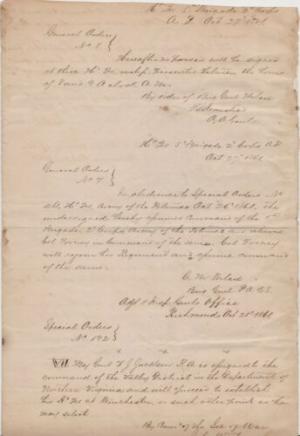 Hd Qrs 5 Brigade 2d Corps
A. P. Oct 27th 1861
General Orders
No 1.
Hereafter no passes will be signed
at these Hd Qrs except between the hours
of and A. M.
By order of Brig Genl Wilcox
A. A. Genl
Hd Qrs 5th Brigade 2d Corps A. P.
Oct 27th 1861
General Orders
No 7.
In obedience to Special Orders No
Hd Qrs Army of the Potomac Oct 26th 1861, the
undersigned hereby assumes command of the 5th
Brigade 2d Corps Army of the Potomac
Col Forney in command of the same. Col Forney
will rejoin his Regiment and assume command
of the same.
C. M. Wilcox
Brig Genl P. A. C. S.
Adjt & Insp Genls Office
Richmond Oct 21st 1861
Special Orders
No 192
VII Maj Genl T. J. Jackson P. A. is assigned to the
command of the Valley District in the Department of
Northern Virginia and will proceed to establish
his Hd Qrs at Winchester or such other point as he
may select.
By Comd of the Sec of War